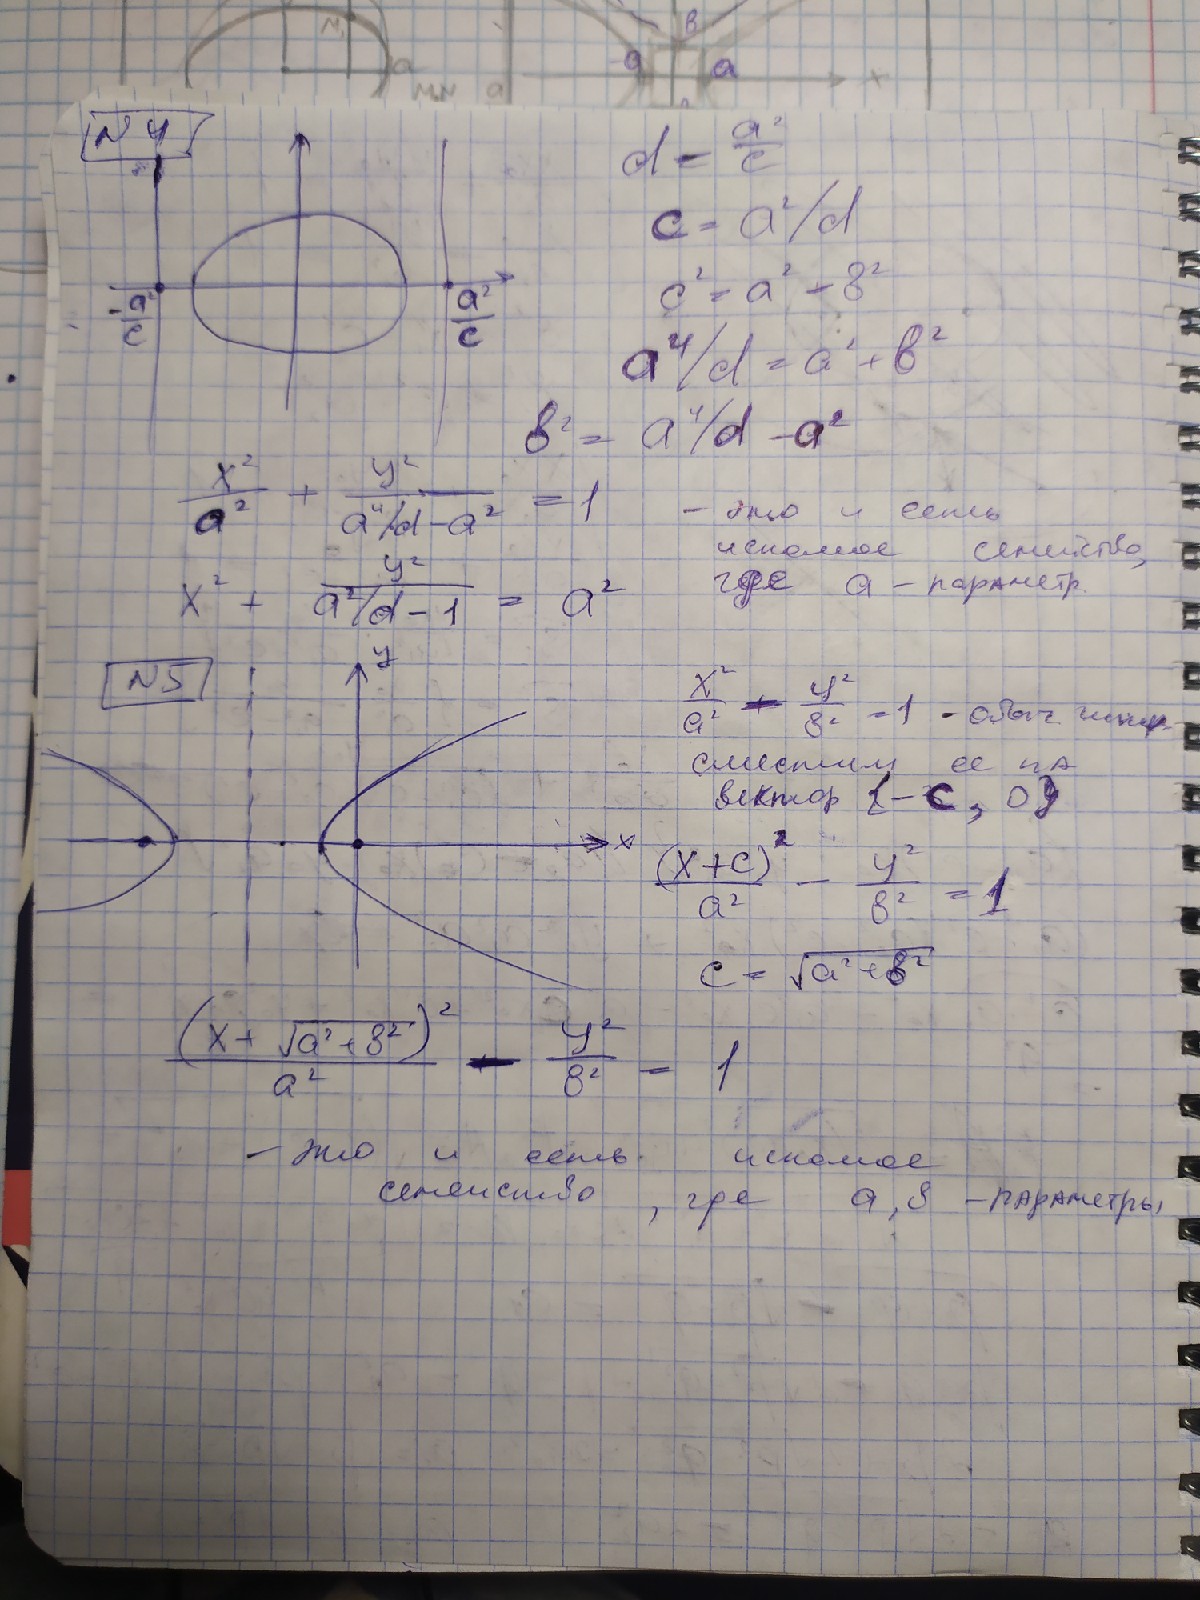 N
в
a
a
x
M,N
a
N 4
d = a²/c
c = a²/d
c² = a² - в²
a⁴/d = a² + в²
-a²/c
a²/c
в² = a⁴/d - a²
x²/a² + y²/(a⁴/d - a²) = 1
- это и есть
искомое семейство,
где a - параметр.
x² + y²/(a²/d - 1) = a²
N5
y
x
x²/a² - y²/в² = 1 -
сместим ее на
вектор {-c, 0}
(x+c)²/a² - y²/в² = 1
c = √(a²+в²)
(x + √(a²+в²))²/a² - y²/в² = 1
- это и есть искомое
семейство, где a, в - параметры